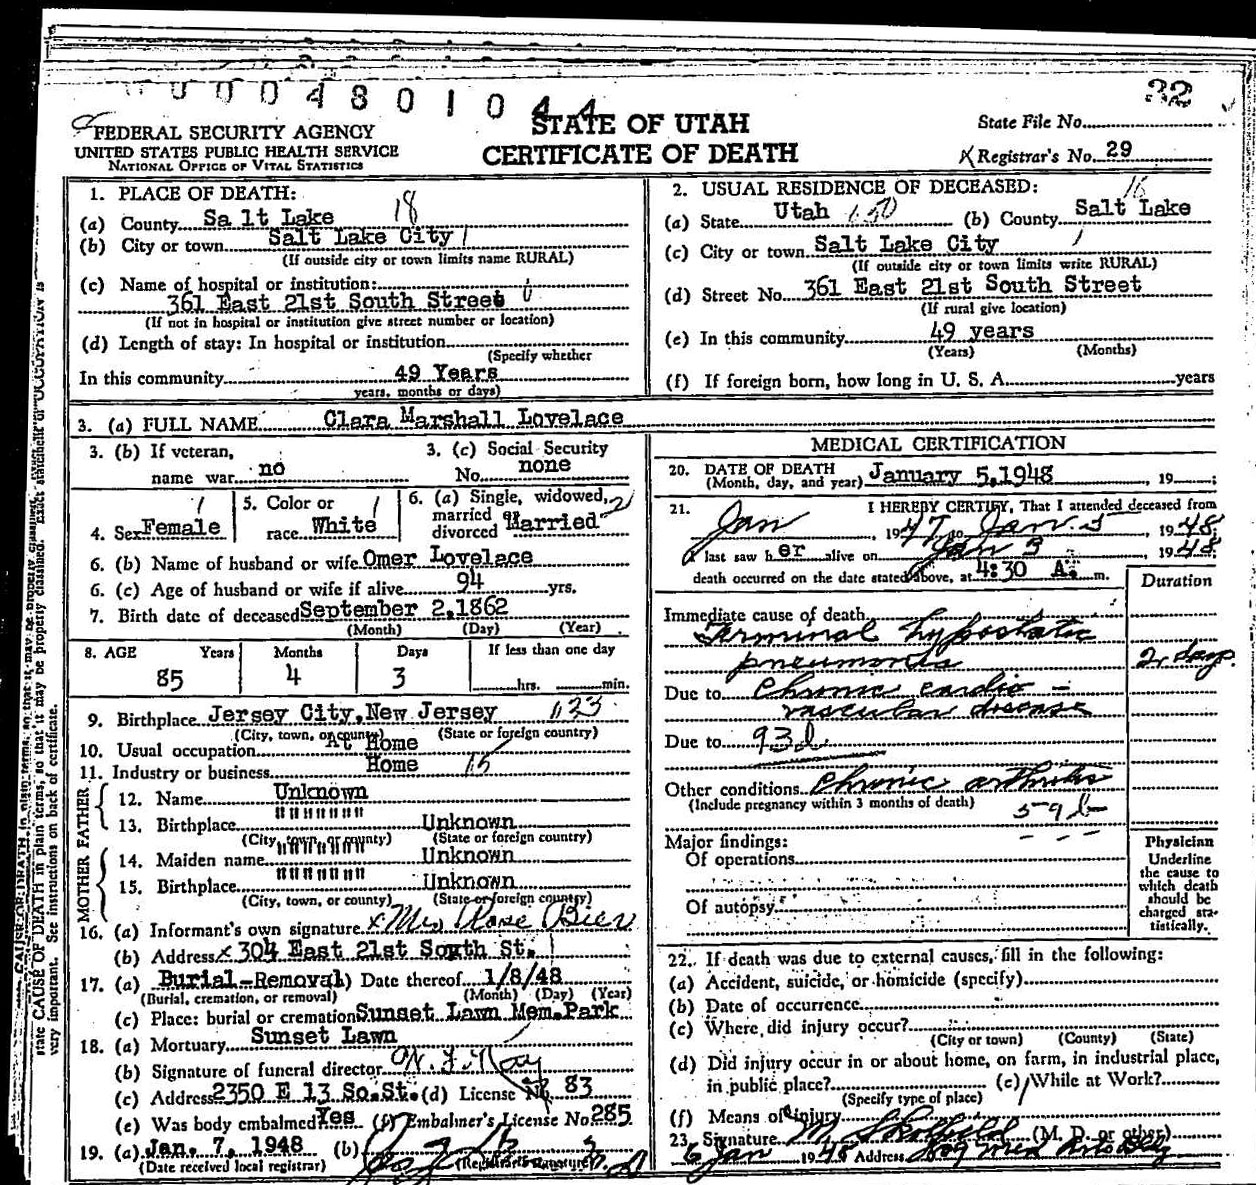 32
0004801044
FEDERAL SECURITY AGENCY
UNITED STATES PUBLIC HEALTH SERVICE
NATIONAL OFFICE OF VITAL STATISTICS
STATE OF UTAH
CERTIFICATE OF DEATH
State File No.
Registrar's No. 29
1. PLACE OF DEATH:
(a) County Sa lt Lake 18
(b) City or town Salt Lake City 1
(If outside city or town limits name RURAL)
(c) Name of hospital or institution:
361 East 21st South Street 0
(If not in hospital or institution give street number or location)
(d) Length of stay: In hospital or institution
(Specify whether
In this community 49 Years
years, months or days)
2. USUAL RESIDENCE OF DECEASED:
(a) State Utah (b) County Salt Lake
(c) City or town Salt Lake City
(If outside city or town limits write RURAL)
(d) Street No. 361 East 21st South Street
(If rural give location)
(e) In this community 49 years
(Years) (Months)
(f) If foreign born, how long in U. S. A. years
3. (a) FULL NAME Clara Marshall Lovelace
3. (b) If veteran,
name war no
3. (c) Social Security
No. none
4. Sex Female
5. Color or
race White
6. (a) Single, widowed,
married or
divorced Married
6. (b) Name of husband or wife Omer Lovelace
6. (c) Age of husband or wife if alive 94 yrs.
7. Birth date of deceased September 2,1862
(Month) (Day) (Year)
8. AGE Years Months Days If less than one day
85 4 3 hrs. min.
9. Birthplace Jersey City,New Jersey
(City, town, or county) (State or foreign country)
10. Usual occupation At Home
11. Industry or business Home
FATHER
12. Name Unknown
13. Birthplace """"""" Unknown
(City, town, or county) (State or foreign country)
MOTHER
14. Maiden name """"""" Unknown
15. Birthplace """"""" Unknown
(City, town, or county) (State or foreign country)
16. (a) Informant's own signature x Mrs Rose Bier
(b) Address x 304 East 21st South St.
17. (a) Burial-Removal) Date thereof 1/8/48
(Burial, cremation, or removal) (Month) (Day) (Year)
(c) Place: burial or cremation Sunset Lawn Mem.Park
18. (a) Mortuary Sunset Lawn
(b) Signature of funeral director
(c) Address 2350 E 13 So.St. (d) License No. 83
(e) Was body embalmed Yes (f) Embalmer's License No 285
19. (a) Jan. 7, 1948 (b)
(Date received local registrar) (Registrar's signature)
MEDICAL CERTIFICATION
20. DATE OF DEATH
(Month, day, and year) January 5,1948, 19
21. I HEREBY CERTIFY, That I attended deceased from
Jan, 1947 to Jan 5 1948
I last saw her alive on Jan 3 1948
death occurred on the date stated above, at 4:30 A. m.
Duration
Immediate cause of death
Terminal hypostatic
pneumonia 2 days.
Due to Chronic cardio-
vascular disease
Due to 93d
Other conditions Chronic arthritis
(Include pregnancy within 3 months of death) 59b
Major findings:
Of operations
Of autopsy
Physician
Underline
the cause to
which death
should be
charged sta-
tistically.
22. If death was due to external causes, fill in the following:
(a) Accident, suicide, or homicide (specify)
(b) Date of occurrence
(c) Where did injury occur?
(City or town) (County) (State)
(d) Did injury occur in or about home, on farm, in industrial place,
in public place? (e) While at Work?
(Specify type of place)
(f) Means of injury
23. Signature (M. D. or other)
6 Jan 1948 Address
state CAUSE OF DEATH in plain terms, so that it may be properly classified.
very important. See instructions on back of certificate.